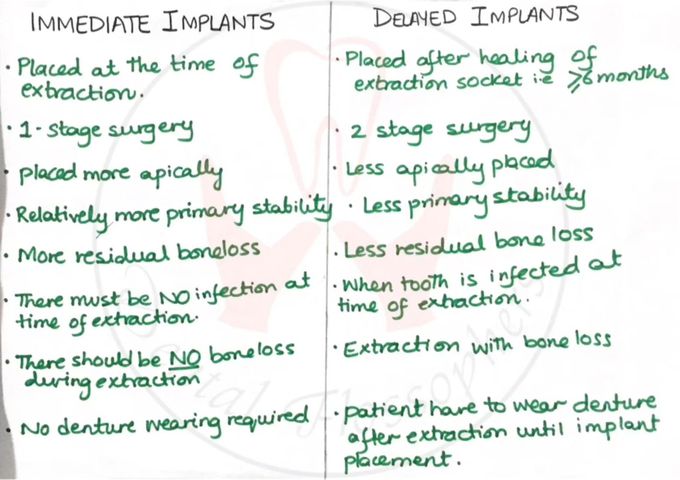 IMMEDIATE IMPLANTS
• Placed at the time of
extraction.
• 1-stage surgery
• placed more apically
• Relatively more primary stability
• More residual boneloss
• There must be NO infection at
time of extraction.
• There should be NO boneloss
during extraction
• No denture wearing required
DELAYED IMPLANTS
• Placed after healing of
extraction socket i.e ≥6 months
• 2 stage surgery
• Less apically placed
• Less primary stability
• Less residual bone loss
• When tooth is infected at
time of extraction.
• Extraction with bone loss
• patient have to wear denture
after extraction until implant
placement.